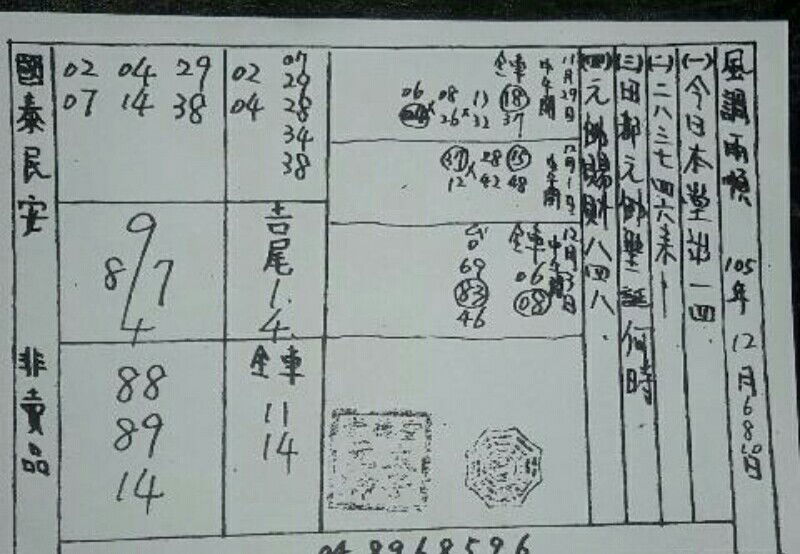 風調雨順 105年 12月6 8 10日
(一)今日本堂出一四
(二)二八三七四六来
(三)田都元帥聖誕何時
(四)元帥賜財八四八
11月29日
中午開
全車
06 08 11 18
26 32 37
12月1日
中午開
37 28 25
12 42 48
12月3日
中午開
全車
06
08
69
83
46
02 07
04 29
28
34
38
吉尾
1.
4.
全車
11
14
02 04 29
07 14 38
9
8/7
4
88
89
14
國泰民安 非賣品
04 8968596